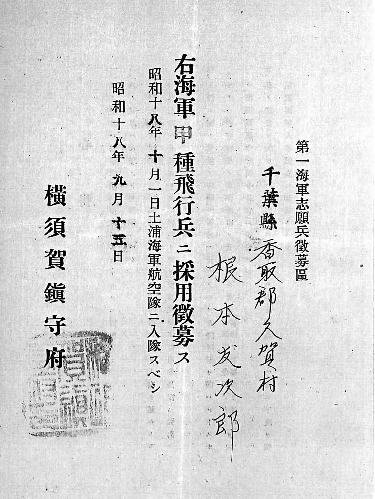 第一海軍志願兵徴募區
千葉縣香取郡久賀村
根本次郎
右海軍甲種飛行兵ニ採用徴募ス
昭和十八年十月一日土浦海軍航空隊ニ入隊スベシ
昭和十八年九月十五日
横須賀鎭守府